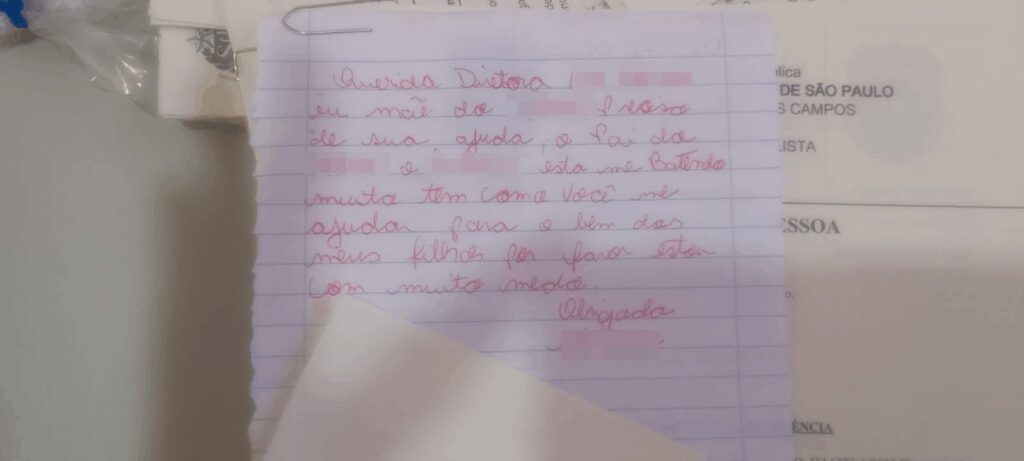 Querida Diretora
eu mãe do preciso
de sua, ajuda, o Pai do
e esta me Batendo
muito tem como você me
ajudar para o bem dos
meus filhos por favor estou
com muito medo.
Obrigada
blica
DE SÃO PAULO
S CAMPOS
LISTA
ESSOA
ÊNCIA